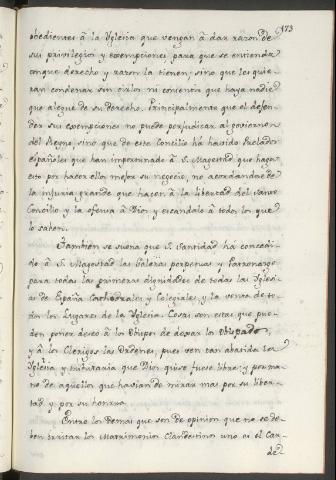 173
obedientes â la Yglesia que vengan â dar razon de
sus privilegios y exempciones para que se entienda
conque derecho y razon la tienen; sino que les quie-
ran condenar sin oirlos ni consentir que haya nadie
que alegue de su derecho. Principalmente que el defen-
der sus exempciones no puede perjudicar al govierno
del Reyno, sino que de este Concilio hâ havido Prelados
españoles que han importunado â S. Magestad que haga
esto por hacer ellos mejor su negocio, no acordandose de
la injuria grande que hacen â la libertad del Santo
Concilio y la ofensa â Dios y escandalo â todos los que
lo saben.
Tambien se suena que S. Santidad hâ concedi-
do â S. Magestad las Galeras perpetuas y Patronazgo
para todas las primeras dignidades de todas las Yglesi-
as de España Cathedrales y Colegiales, y la venta de to-
dos los Lugares de la Yglesia. Cosas son estas que pue-
den poner deseo â los Obispos de dexar los Obispados,
y â los Clerigos las Ordenes, pues ven tan abatida la
Yglesia y tributaria que Dios quiso fuese libre; y por ma-
no de aquellos que havian de mirar mas por su liber-
tad y por su honrra.
Entre los demas que son de opinion que no se de-
ben irritar los Matrimonios Clandestinos uno es el Car-
de